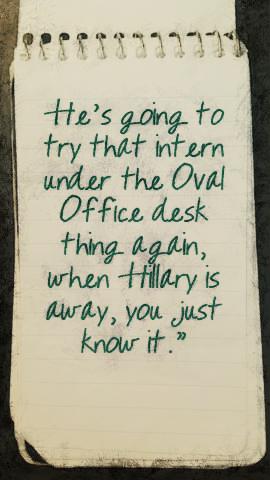 He's going to
try that intern
under the Oval
Office desk
thing again,
when Hillary is
away, you just
know it."